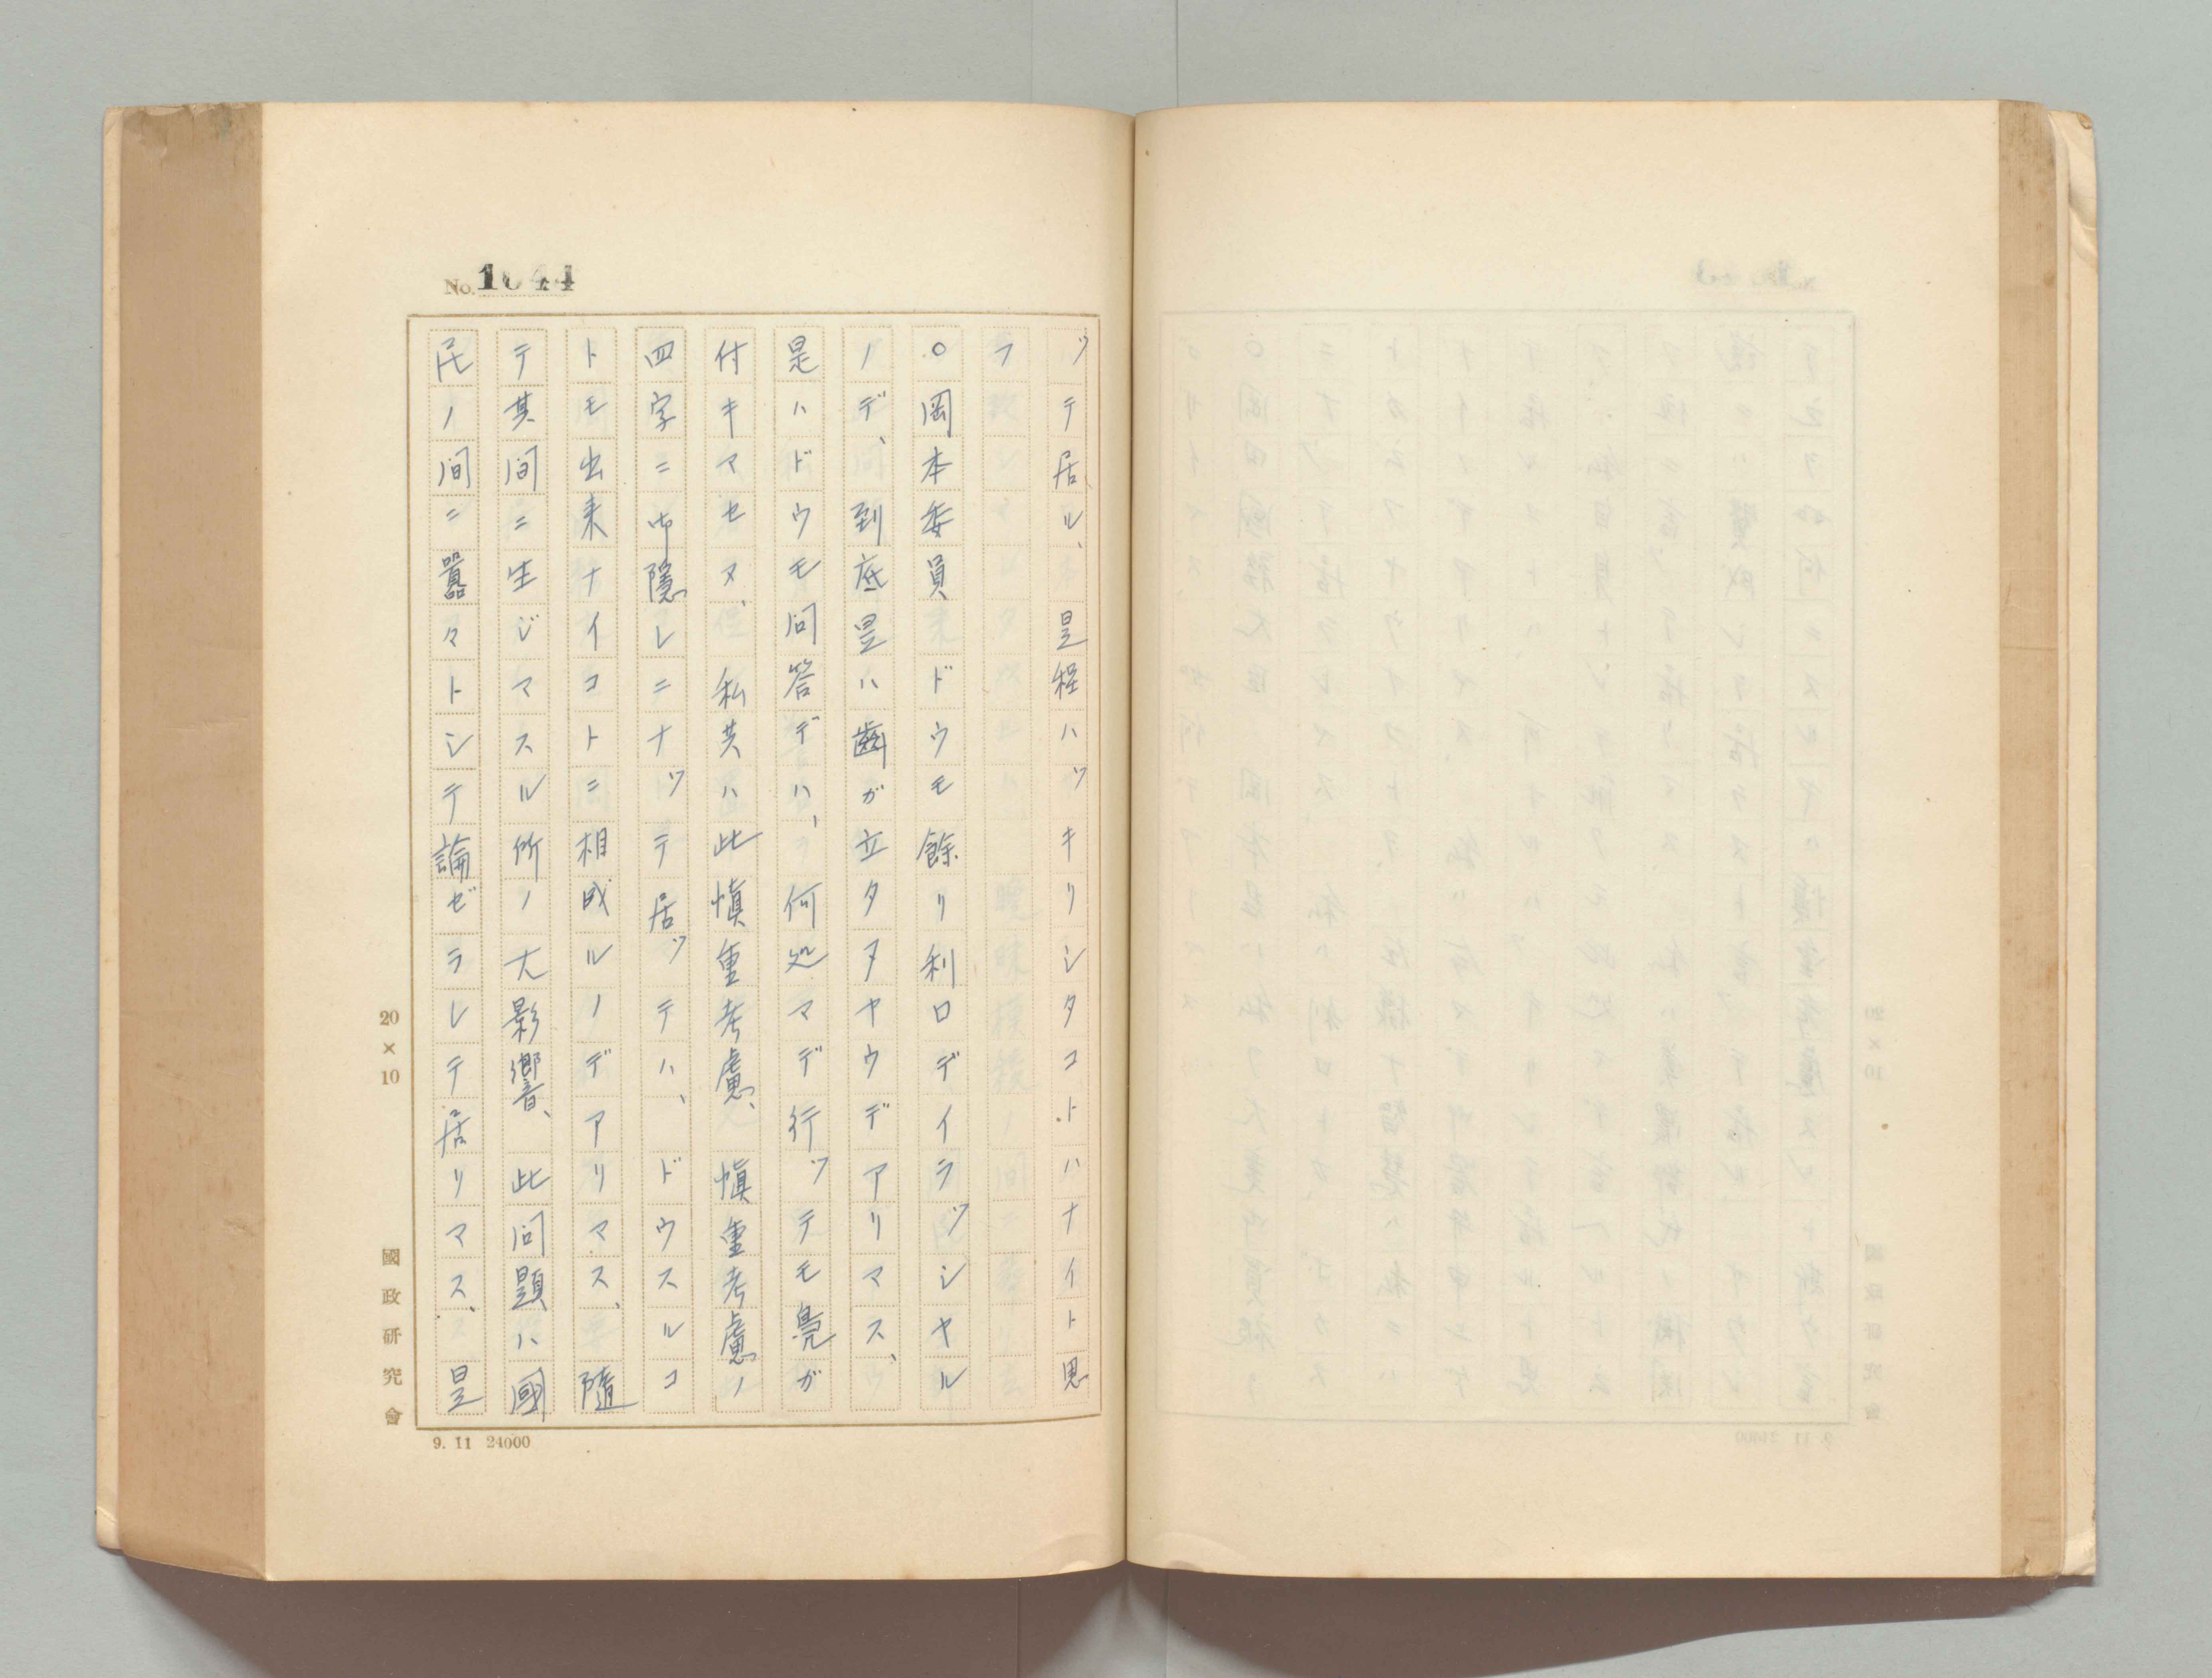 No. 1044
ツテ居ル、是程ハツキリシタコトハナイト思
フ
○岡本委員　ドウモ餘リ利口デイラツシヤル
ノデ、到底是ハ齒ガ立タヌヤウデアリマス、
是ハドウモ問答デハ、何処マデ行ツテモ鳧ガ
付キマセヌ、私共ハ此愼重考慮、愼重考慮ノ
四字ニ御隱レニナツテ居ツテハ、ドウスルコ
トモ出来ナイコトニ相成ルノデアリマス、隨
テ其間ニ生ジマスル所ノ大影響、此問題ハ國
民ノ間ニ囂々トシテ論ゼラレテ居リマス、是
20×10
國政研究會
9. 11 24000